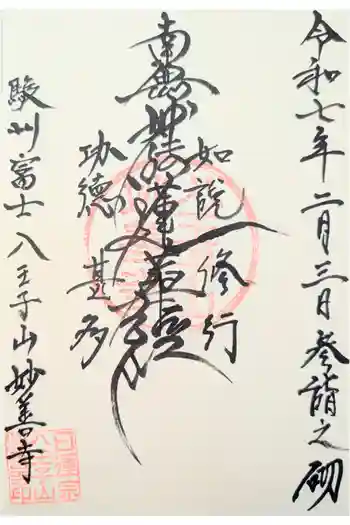 令和七年二月三日参詣之砌
如説修行
南無妙法蓮華経
功徳甚多
駿州富士八王子山妙善寺